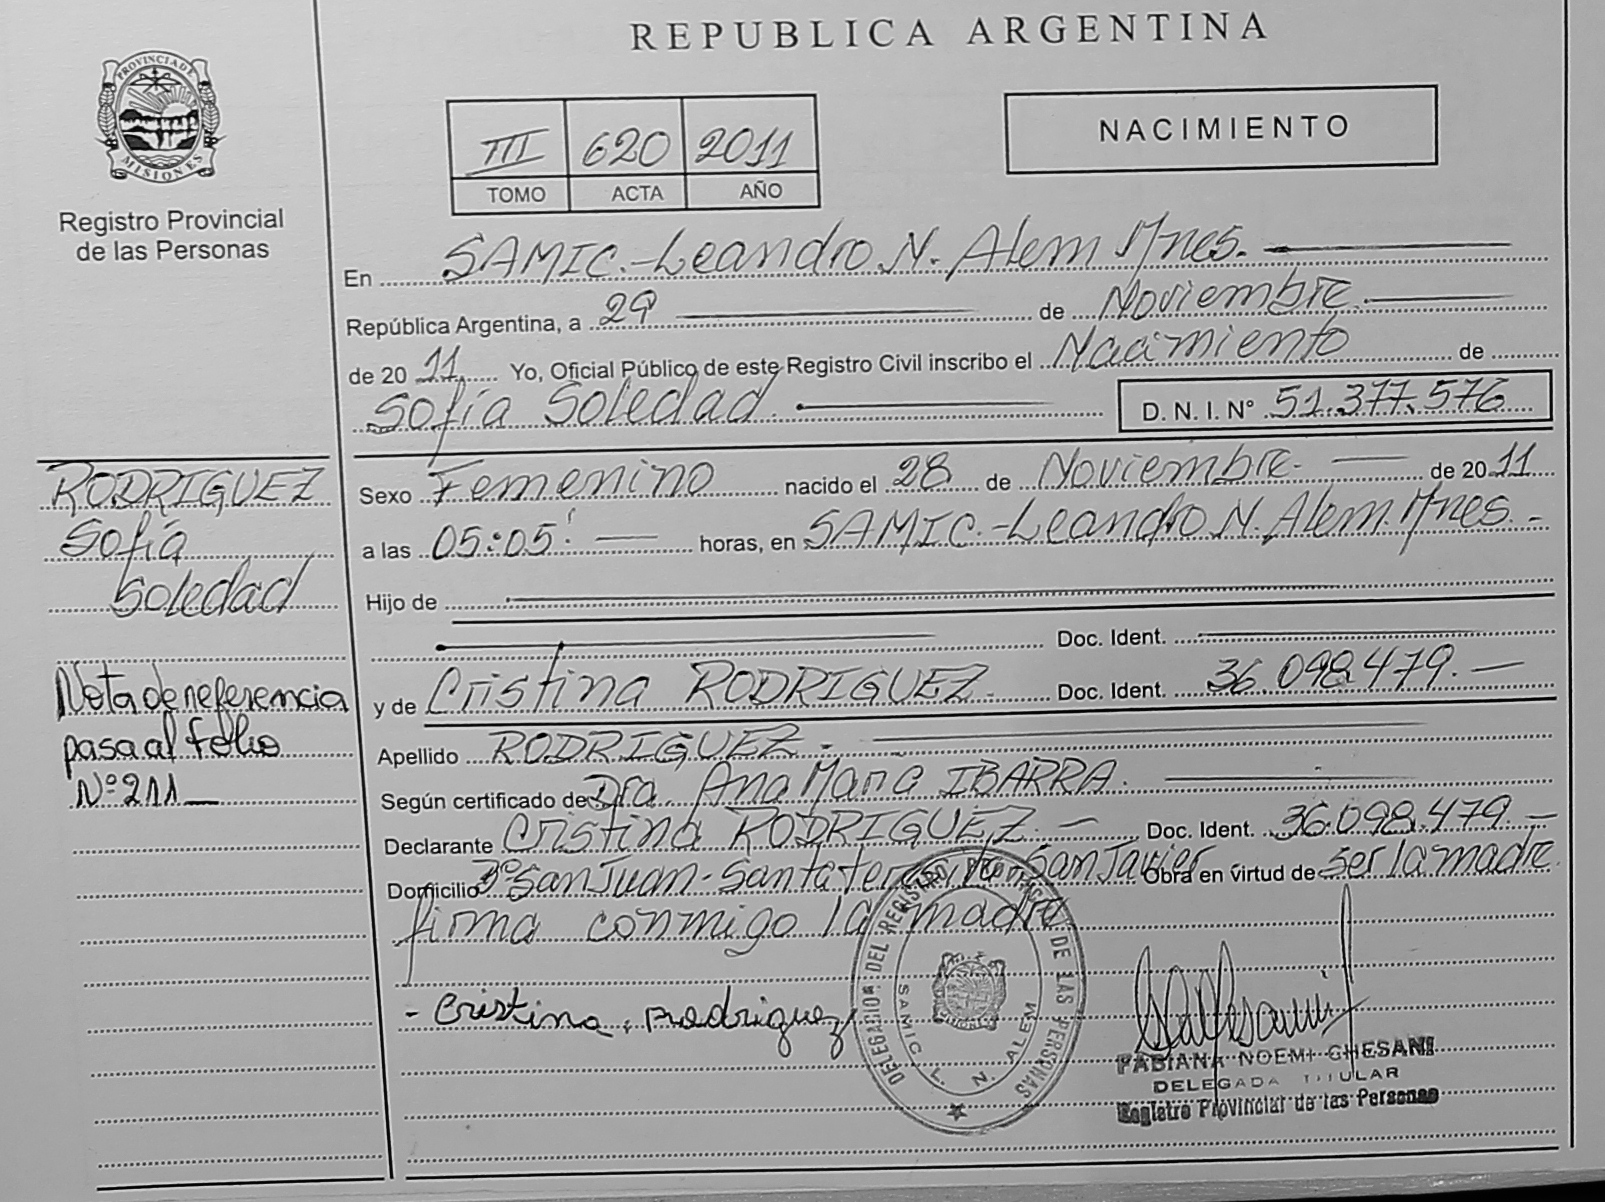 REPUBLICA ARGENTINA
PROVINCIA DE MISIONES
Registro Provincial
de las Personas
III 620 2011
TOMO ACTA AÑO
NACIMIENTO
En SAMIC.-Leandro N. Alem Mnes.
República Argentina, a 29 de Noviembre
de 20 11 Yo, Oficial Público de este Registro Civil inscribo el Nacimiento de
Sofía Soledad. D. N. I. N° 51.377.576
RODRIGUEZ
Sofía
Soledad
Nota de referencia
pasa al folio
N° 211
Sexo Femenino nacido el 28 de Noviembre. de 20 11
a las 05:05' horas, en SAMIC.-Leandro N. Alem. Mnes.-
Hijo de
Doc. Ident.
y de Cristina RODRIGUEZ.- Doc. Ident. 36.098.479.-
Apellido RODRIGUEZ.-
Según certificado de Dra. Ana Maria IBARRA.
Declarante Cristina RODRIGUEZ.- Doc. Ident. 36.098.479.-
Domicilio B° San Juan- Santa San Javier Obra en virtud de ser la madre.
firma conmigo la madre
- Cristina, Rodriguez
DELEGACION DEL REGISTRO DE LAS PERSONAS
SAMIC L. N. ALEM
FABIANA NOEMI GHESANI
DELEGADA TITULAR
Registro Provincial de las Personas